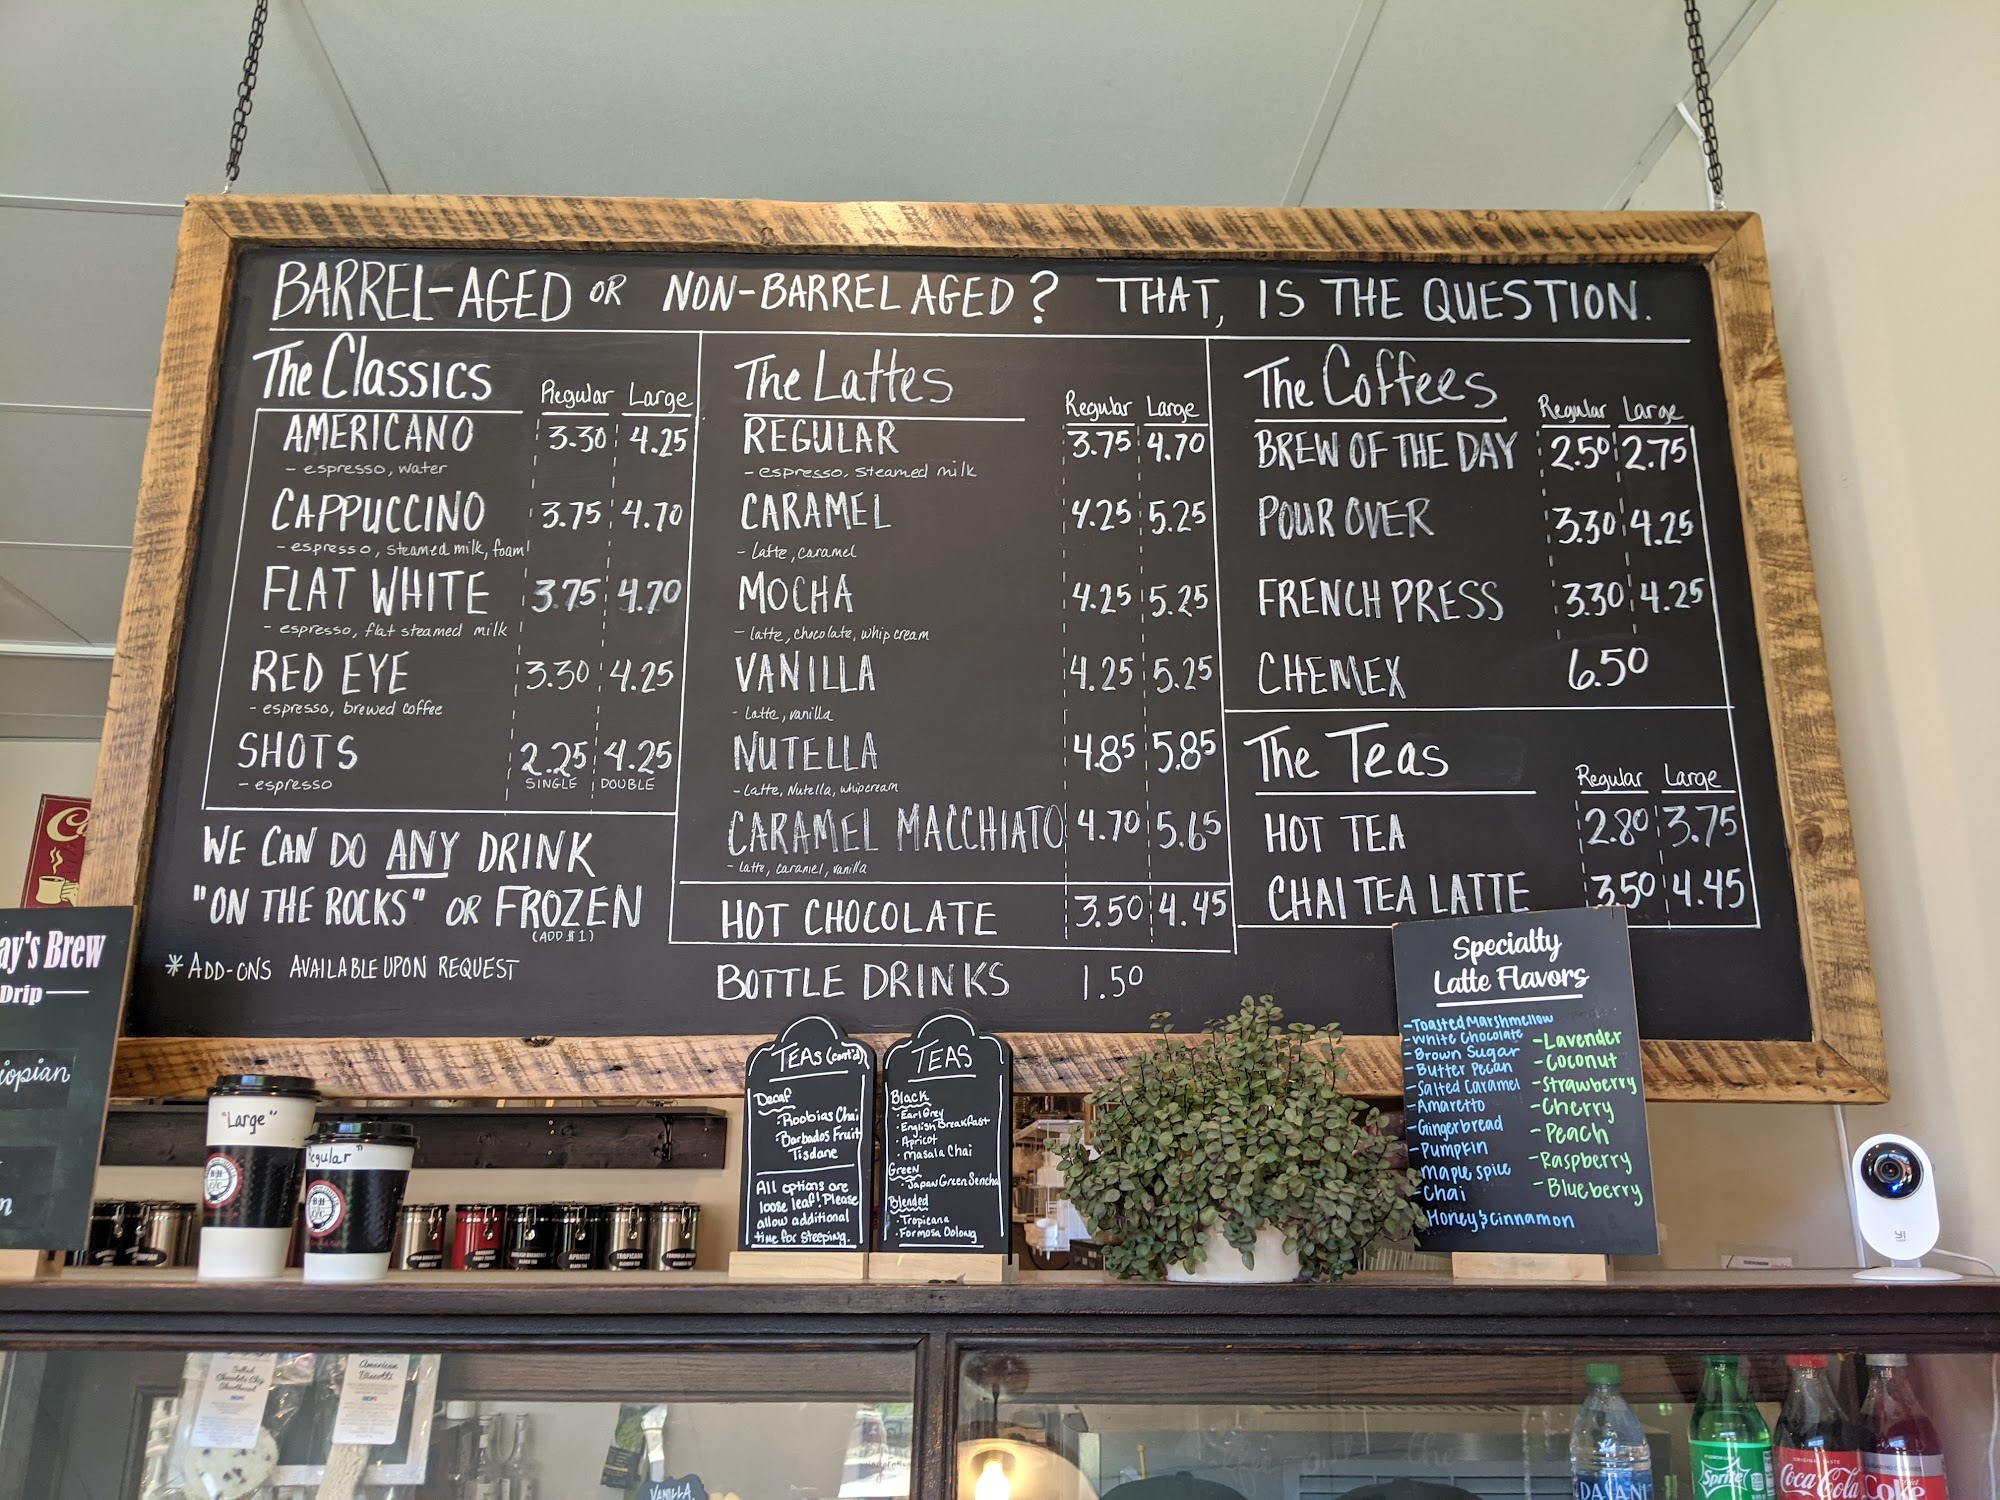 BARREL-AGED OR NON-BARREL AGED? THAT, IS THE QUESTION.
The Classics Regular Large
AMERICANO 3.30 4.25
- espresso, water
CAPPUCCINO 3.75 4.70
- espresso, steamed milk, foam
FLAT WHITE 3.75 4.70
- espresso, flat steamed milk
RED EYE 3.30 4.25
- espresso, brewed coffee
SHOTS 2.25 4.25
- espresso SINGLE DOUBLE
WE CAN DO ANY DRINK
"ON THE ROCKS" OR FROZEN
(ADD $1)
* ADD-ONS AVAILABLE UPON REQUEST
The Lattes Regular Large
REGULAR 3.75 4.70
- espresso, steamed milk
CARAMEL 4.25 5.25
- latte, caramel
MOCHA 4.25 5.25
- latte, chocolate, whip cream
VANILLA 4.25 5.25
- latte, vanilla
NUTELLA 4.85 5.85
- latte, Nutella, whip cream
CARAMEL MACCHIATO 4.70 5.65
- latte, caramel, vanilla
HOT CHOCOLATE 3.50 4.45
BOTTLE DRINKS 1.50
The Coffees Regular Large
BREW OF THE DAY 2.50 2.75
POUR OVER 3.30 4.25
FRENCH PRESS 3.30 4.25
CHEMEX 6.50
The Teas Regular Large
HOT TEA 2.80 3.75
CHAI TEA LATTE 3.50 4.45
ay's Brew
Drip
opian
"Large"
egular"
TEAS (cont'd)
Decaf
- Roobias Chai
- Barbados Fruit
Tisdane
All options are
loose leaf! Please
allow additional
time for steeping.
TEAS
Black
- Earl Grey
- English Breakfast
- Apricot
- Masala Chai
Green
- Japan Green Sencha
Blended
- Tropicana
- Formosa Oolong
Specialty
Latte Flavors
- Toasted Marshmellow
- White Chocolate
- Brown Sugar
- Butter Pecan
- Salted Caramel
- Amaretto
- Gingerbread
- Pumpkin
- Maple Spice
- Chai
- Honey & Cinnamon
- Lavender
- Coconut
- Strawberry
- Cherry
- Peach
- Raspberry
- Blueberry
YI
APRICOT
TROPICANA
Salted
Chocolate Chip
Shortbread
American
Biscotti
VANILLA
DASANI
Sprite
Coca-Cola
Coke